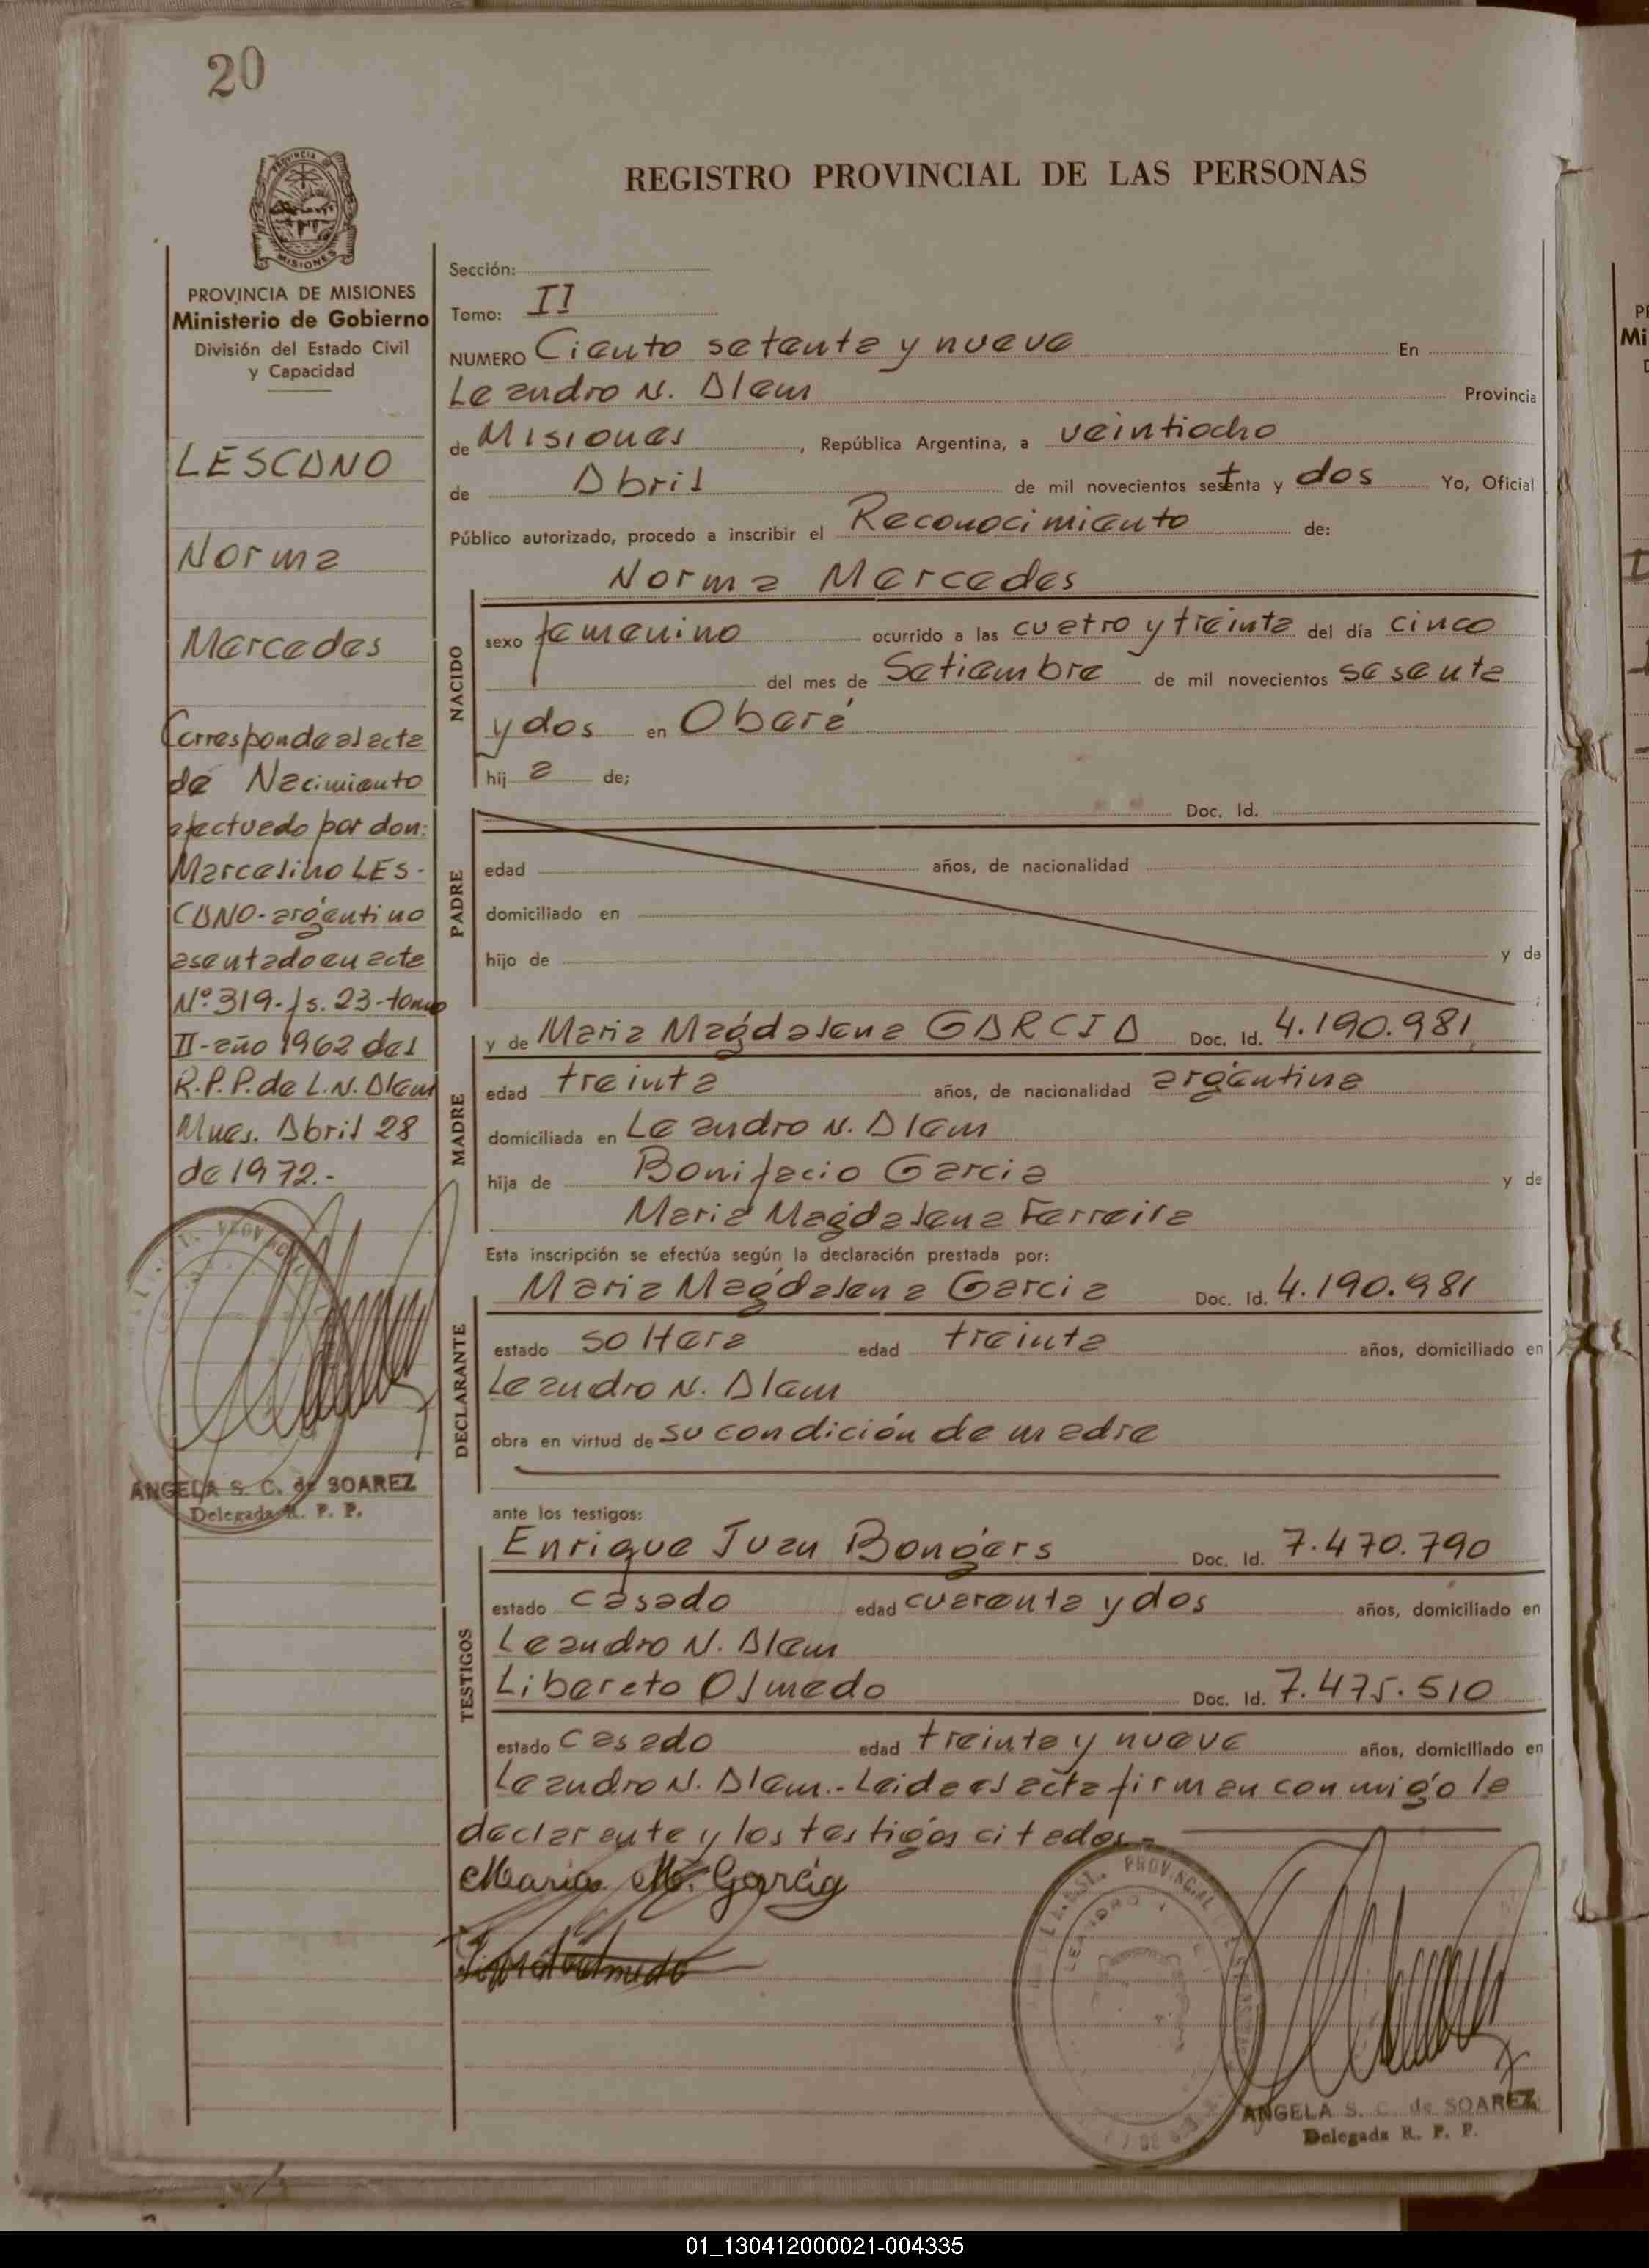 20
REGISTRO PROVINCIAL DE LAS PERSONAS
PROVINCIA DE MISIONES
PROVINCIA DE MISIONES
Ministerio de Gobierno
División del Estado Civil
y Capacidad
LESCANO
Norma
Mercedes
Corresponde al acta
de Nacimiento
efectuado por don:
Marcelino LES-
CANO-argentino
asentado en acta
Nº 319-fs. 23-tomo
II-año 1962 del
R.P.P. de L.N. Alem
Mnes. Abril 28
de 1972.-
ANGELA S. C. de SOAREZ
Delegada R. P. P.
Sección:
Tomo: II
NUMERO Ciento setenta y nueve En
Leandro N. Alem Provincia
de Misiones, República Argentina, a veintiocho
de Abril de mil novecientos setenta y dos Yo, Oficial
Público autorizado, procedo a inscribir el Reconocimiento de:
NACIDO
Norma Mercedes
sexo femenino ocurrido a las cuatro y treinta del día cinco
del mes de Setiembre de mil novecientos sesenta
y dos en Oberá
hij a de;
PADRE
Doc. Id.
edad años, de nacionalidad
domiciliado en
hijo de y de
;
MADRE
y de Maria Magdalena GARCIA Doc. Id. 4.190.981
edad treinta años, de nacionalidad argentina
domiciliada en Leandro N. Alem
hija de Bonifacio Garcia y de
Maria Magdalena Ferreira
Esta inscripción se efectúa según la declaración prestada por:
DECLARANTE
Maria Magdalena Garcia Doc. Id. 4.190.981
estado soltera edad treinta años, domiciliado en
Leandro N. Alem
obra en virtud de su condición de madre
ante los testigos:
TESTIGOS
Enrique Juan Bongers Doc. Id. 7.470.790
estado casado edad cuarenta y dos años, domiciliado en
Leandro N. Alem
Libereto Olmedo Doc. Id. 7.475.510
estado casado edad treinta y nueve años, domiciliado en
Leandro N. Alem.- Leida el acta firman conmigo la
declarante y los testigos citados.-
Maria M. Garcia
PROVINCIAL
LEANDRO
ANGELA S. C. de SOAREZ
Delegada R. P. P.
01_130412000021-004335